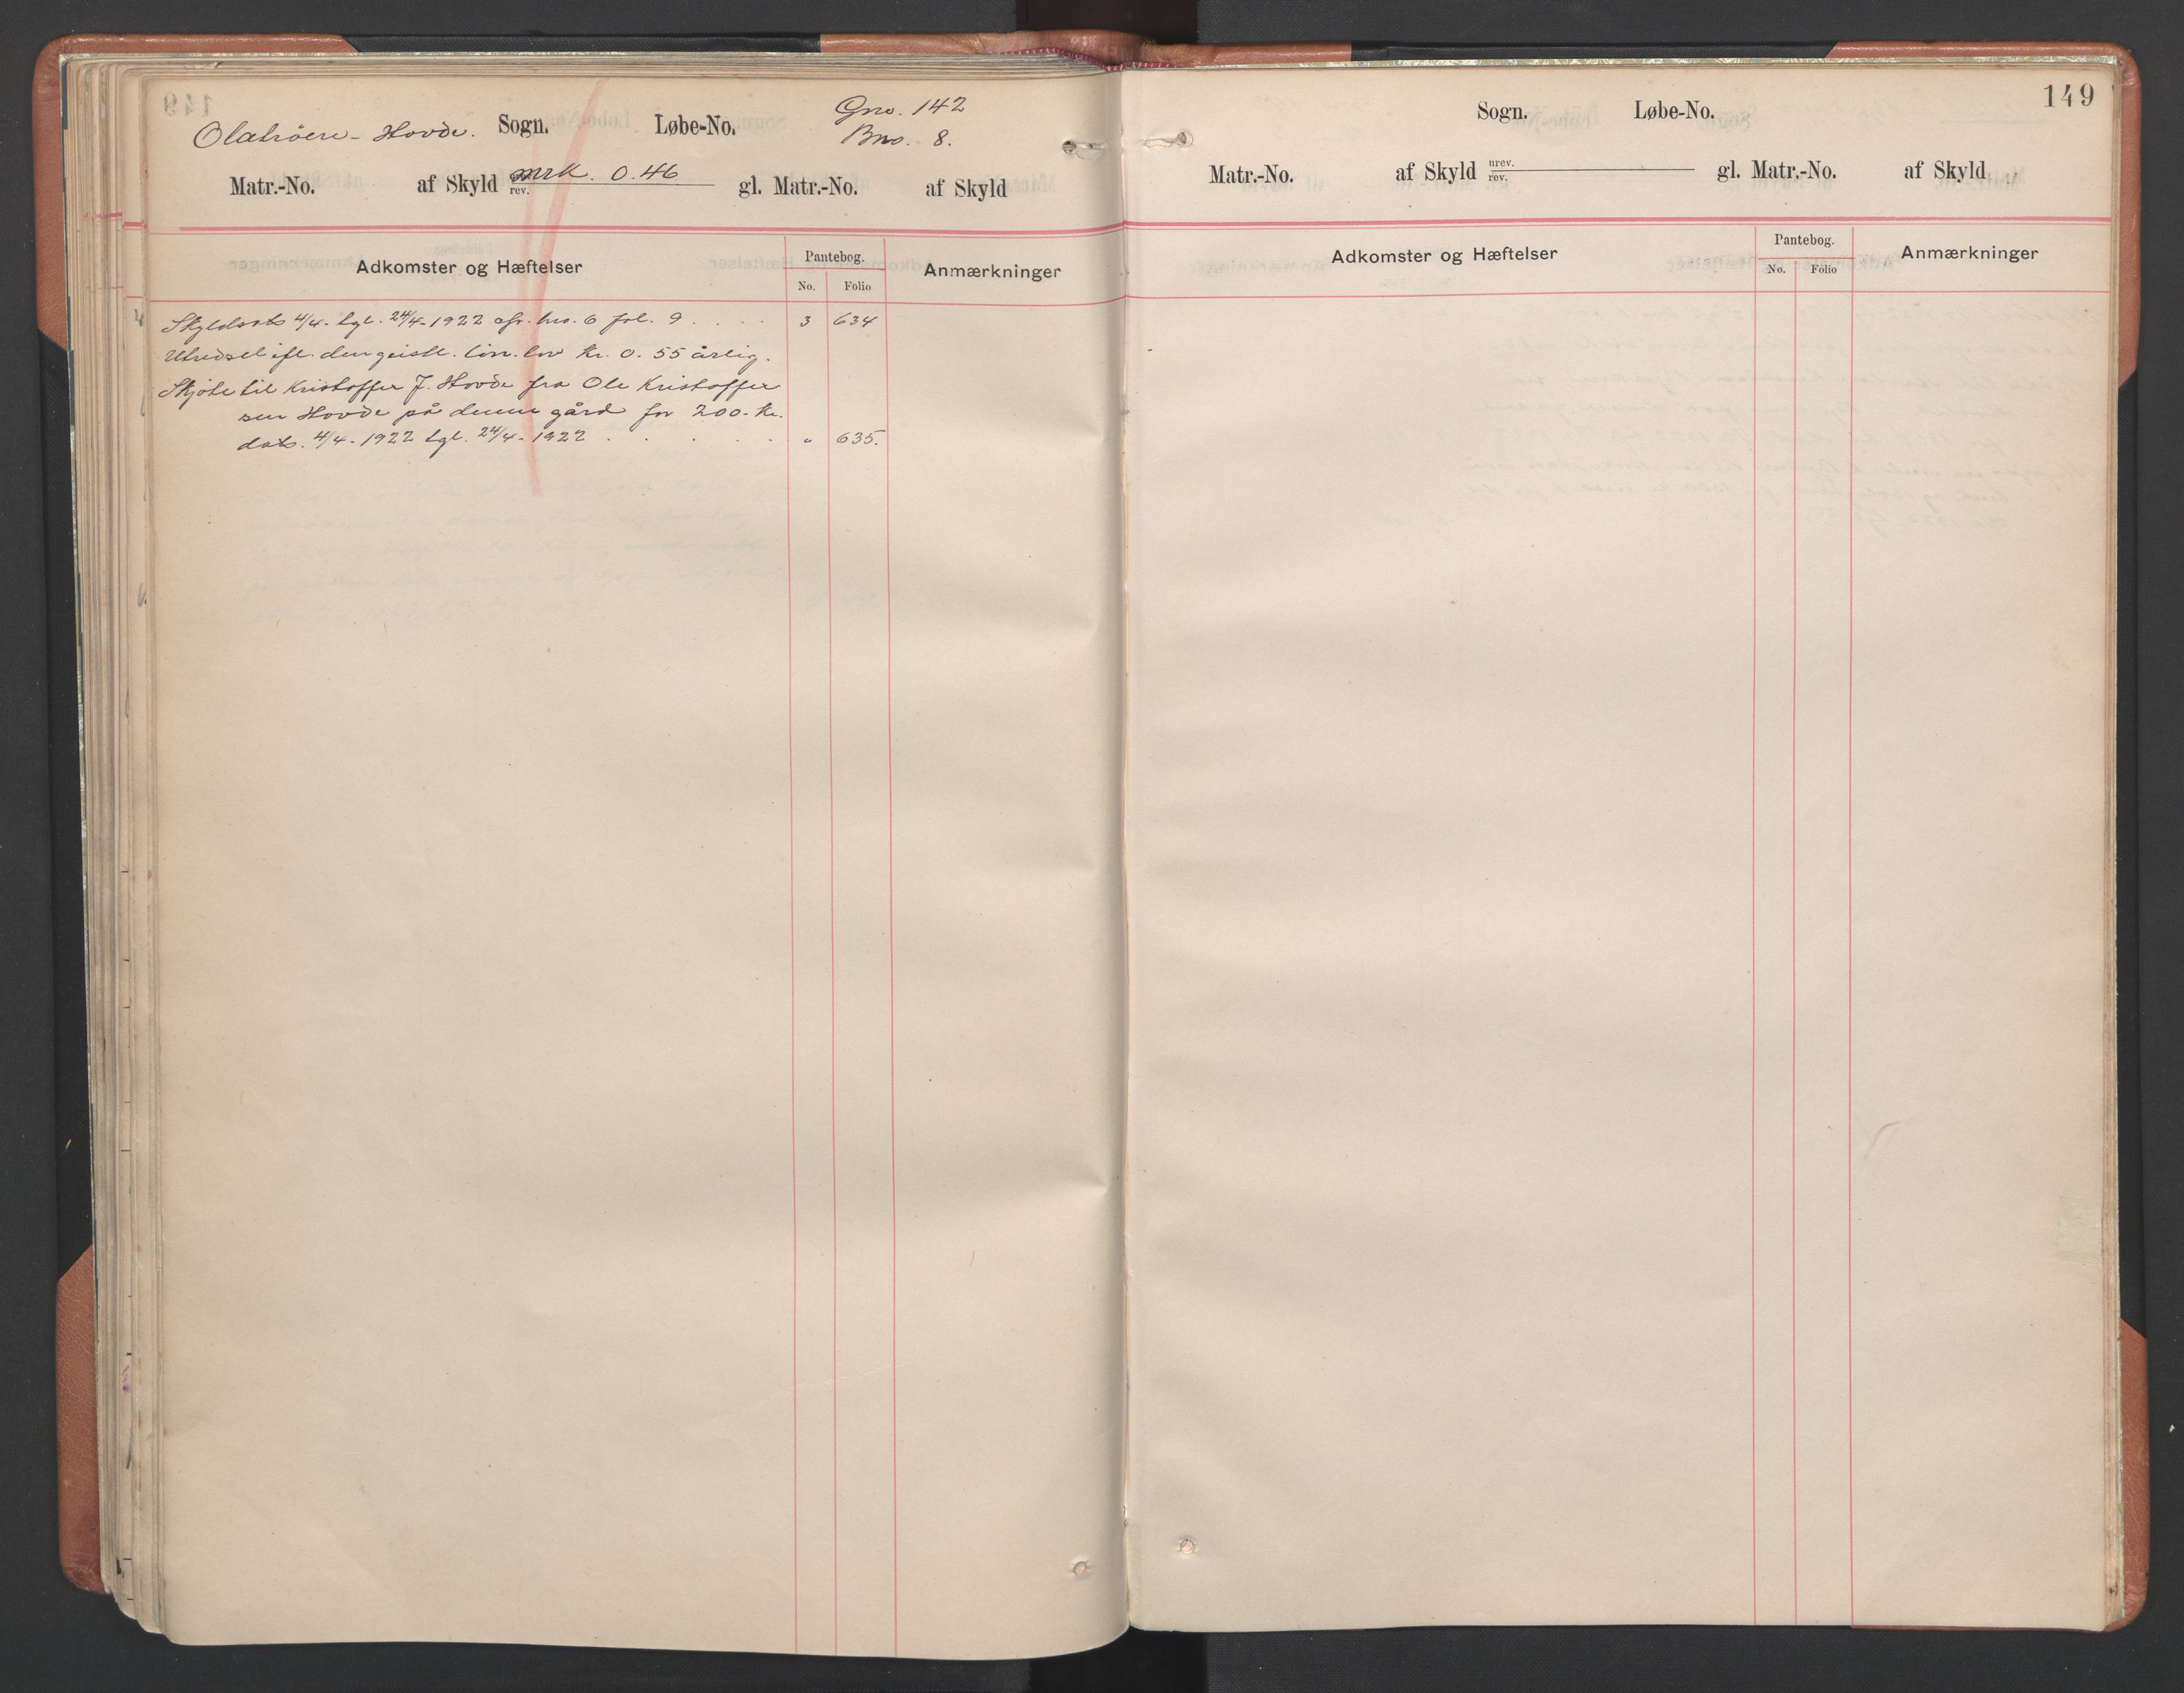 Gno. 142
Olatrøen - Hovde. Sogn. Løbe-No. Bno. 8.
Matr.-No. af Skyld rev. mrk. 0.46 gl. Matr.-No. af Skyld
Adkomster og Hæftelser Pantebog. No. Folio Anmærkninger
Skyldsats 4/4- tgl. 24/4-1922 cfr. bno. 6 fol. 9 . . . . 3 634
Utredsel ifl. den geistl. lön. lov kr. 0.55 årlig.
Skjöte til Kristoffer J. Hovde fra Ole Kristoffer
sen Hovde på denne gård for 200- kr.
dat. 4/4-1922 tgl. 24/4-1922 . . . . . " 635.
149
Sogn. Løbe-No.
Matr.-No. af Skyld urev. rev. gl. Matr.-No. af Skyld
Adkomster og Hæftelser Pantebog. No. Folio Anmærkninger